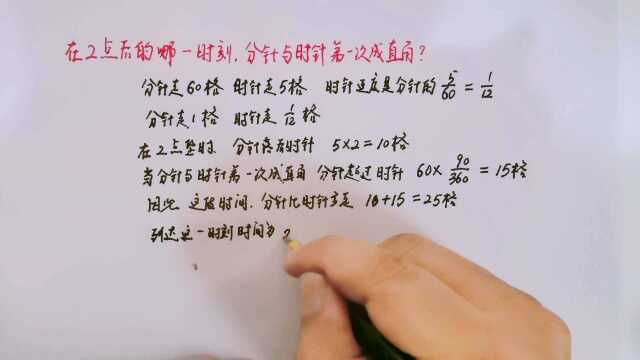 在2点后的哪一时刻,分针与时针第一次成直角?
分针走60格 时针走5格 时针速度是分针的 5/60 = 1/12
分针走1格 时针走 1/12 格
在2点整时 分针落后时针 5×2=10格
当分针与时针第一次成直角 分针超过时针 60× 90/360 = 15格
因此 这段时间,分针比时针多走 10+15=25格
到达这一时刻时间为 2